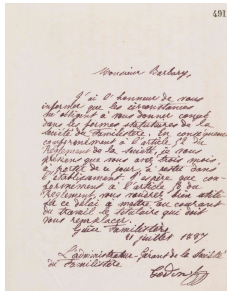 491
Monsieur Barbary,
J'ai l'honneur de vous
informer que les circonstances
m'obligent à vous donner congé
dans les formes statutaires de la
Société du Familistère. En conséquence
conformément à l'article 12 du
Règlement de la Société, je vous
préviens que vous avez trois mois,
à partir de ce jour, à rester dans
l'établissement. J'espère que con-
formément à l'article 13 du
Règlement, vous voudrez bien
ce délai à mettre au courant
du travail le titulaire que doit
vous remplacer.
Guise Familistère
21 juillet 1887
L'administrateur-Gérant de la Société
du Familistère